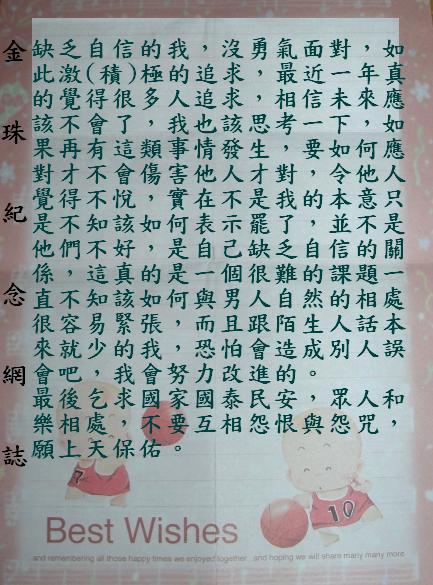 金珠紀念網誌
缺乏自信的我，沒勇氣面對，如
此激(積)極的追求，最近一年真
的覺得很多人追求，相信未來應
該不會了，我也該思考一下，如
果再有這類事情發生，要如何應
對才不會傷害他人才對，令他人
覺得不悅，實在是我的本意只
是不知該如何表示罷了，並不是
他們不好，是自己缺乏自信的關
係，這真的是一個很難的課題一
直不知該如何，與男人自然的相處
很容易緊張，而且跟陌生人話本
來就少的我，恐怕會造成別人誤
會吧，我會努力改進的。
最後乞求國家國泰民安，眾人和
樂相處，不要互相怨恨，與怨咒，
願上天保佑。
7
10
Best Wishes
and remembering all those happy times we enjoyed together and hoping we will share many many more